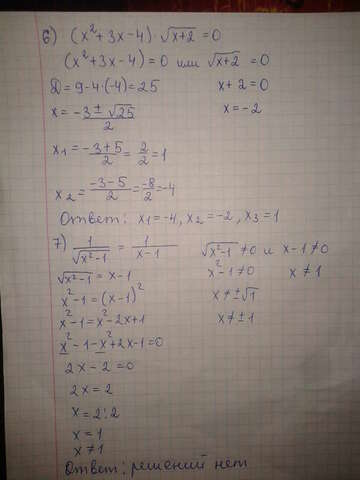 6) (x²+3x-4)·√x+2=0
(x²+3x-4)=0 или √x+2=0
D=9-4·(-4)=25 x+2=0
x=-3±√25/2 x=-2
x₁=-3+5/2=2/2=1
x₂=-3-5/2=-8/2=-4
Ответ: x₁=-4, x₂=-2, x₃=1
7) 1/√x²-1=1/x-1 √x²-1≠0 и x-1≠0
√x²-1=x-1 x²-1≠0 x≠1
x²-1=(x-1)² x≠±√1
x²-1=x²-2x+1 x≠±1
x²-1-x²+2x-1=0
2x-2=0
2x=2
x=2:2
x=1
x≠1
Ответ: решений нет